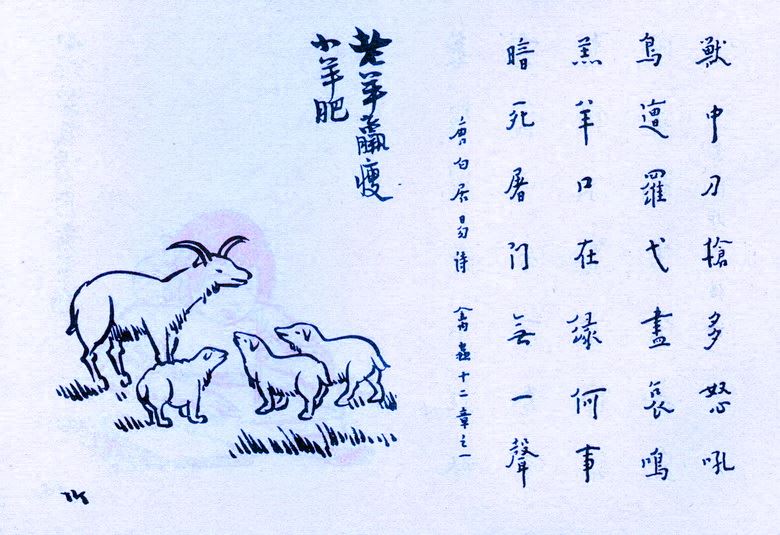 獸中刀槍多怒吼
鳥遭羅弋盡哀鳴
羔羊口在緣何事
暗死屠门無一聲
唐白居易詩 禽蟲十二章之一
老羊羸瘦
小羊肥
TK